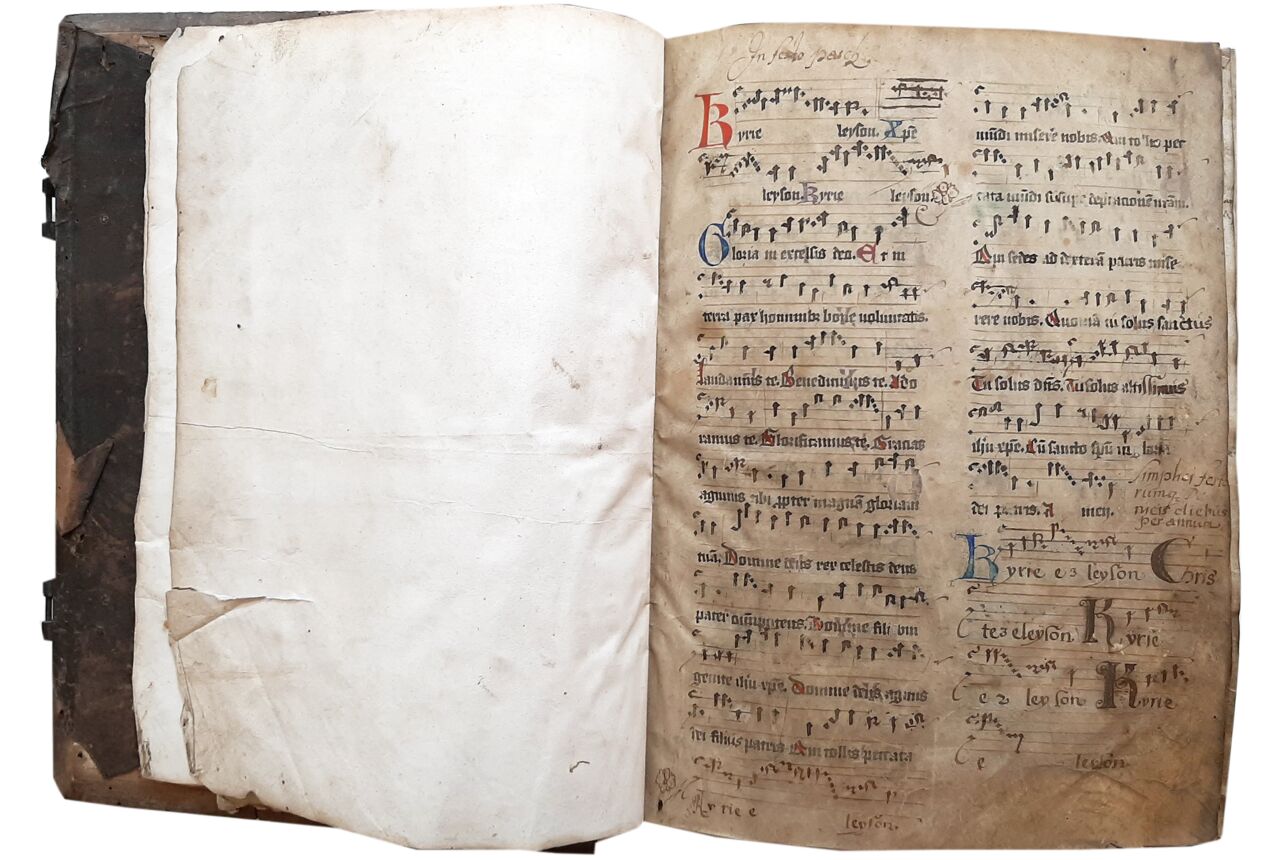 In festo pasch
Kyrie leyson. Xpe
leyson. Kyrie leyson.
Gloria in excelsis deo. Et in
terra pax hominibz bone voluntatis.
laudamus te. Benedicimus te. Ado
ramus te. Glorificamus te. Gracias
agimus tibi ppter magnã gloriam
tuã. Domine deus rex celestis deus
pater omipotens. Domine fili uni
genite ihu xpe. Domine deus agnus
dei filius patris Qui tollis peccata
Kyrie e leyson.
mũdi misere nobis. Qui tollis pec
cata mũdi suscipe deprcationẽ nrãm.
Qui sedes ad dexterã patris mise
rere nobis. Quoniã tu solus sanctus
Tu solus dñs. Tu solus altissimus
ihu xpe. Cũ sancto spũ in gloria
dei patris. A men.
simplici festo
rumq
per annum
Kyrie e leyson Chris
te eleyson Kyrie
e leyson Kyrie
e leyson